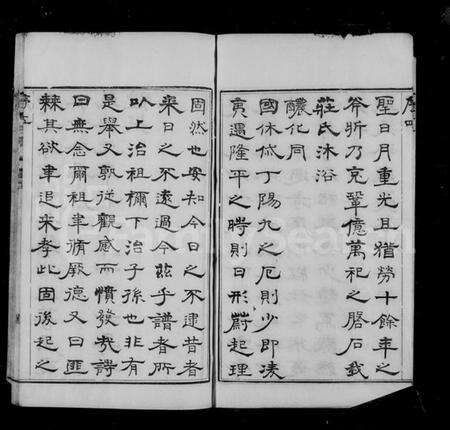 聖日月重光且猶勞十餘年之
斧折乃克鞏億萬祀之磐石我
莊氏沐浴
醲化同
國休恘丁陽九之厄則少即淩
夷遇隆平之時則日形蔚起理
固然也安知今日之不逮昔者
來日之不遠過今茲乎譜者所
以上治祖禰下治子孫也非有
是舉又孰從觀感而憤發哉詩
曰無念爾祖聿脩厥德又曰匪
棘其欲聿追來孝此固後起之